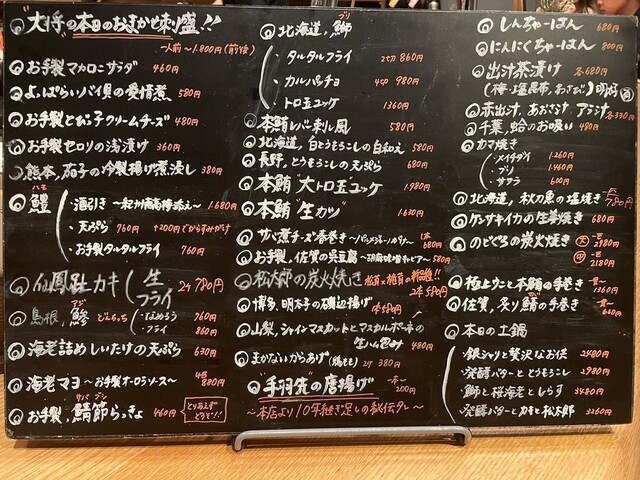 "大将"の本日のおまかせ刺し盛!!
一人前〜1.800円(前後)
お手製マカロニサラダ 460円
よっぱらいバイ貝の愛情煮 580円
お手製とびっ子クリームチーズ 480円
お手製セロリの浅漬け 360円
熊本、茄子の冷製揚げ煮浸し 380円
鱧 ハモ
・酒引き 〜紀州南高梅添え〜 1.680円
・天ぷら 760円 +200円でからすみがけ
・お手製タルタルフライ 760円
仙鳳趾カキ(生・フライ 2ヶ780円
島根、鯵 アジ どんちっち
・なめろう 760円
・フライ 860円
海老詰めしいたけの天ぷら 630円
海老マヨ〜お手製オーロラソース〜 4尾 880円
お手製、鯖節らっきょ サバ ブシ 460円 とりあえずどうぞ!!
北海道、鰤 ブリ
・タルタルフライ 2切 860円
・カルパッチョ 4切 980円
・トロ玉ユッケ 1360円
本鮪レバー刺し風 580円
北海道、白とうもろこしの白和え 580円
長野、とうもろこしの天ぷら 680円
本鮪"大トロ玉"ユッケ 1.980円
本鮪"生カツ" 1.630円
サバ煮チーズ春巻き〜バルサミコソース〜 1本 680円
お手製、佐賀の呉豆腐 580円
松太郎の炭火焼き 2本 580円
博多、明太子の磯辺揚げ 1本 580円
山梨、シャインマスカットとマスカルポーネの生ハム包み 480円
まかないからあげ(鶏もも) 2ケ 380円
"手羽先"の唐揚げ 一本 200円
〜本店より10年継ぎ足しの秘伝タレ〜
しんちゃーはん 680円
にんにくちゃーはん 800円
出汁茶漬け 各680円
(梅・塩昆布、あさび)明太
赤出汁、あおさ汁、アラ汁 各330円
千葉、蛤のお吸い 480円
カマ焼き
・メイチダイ 1.260円
・ブリ 1.460円
・サワラ 600円
北海道、秋刀魚の塩焼き 一匹 780円
ケンサキイカの生姜焼き 680円
のどぐろの炭火焼き 大 一匹 2980円
中 一匹 2180円
極上うにと本鮪の手巻き 一貫 1360円
佐賀、炙り鯖の手巻き 一貫 640円
本日の土鍋
・銀シャリと贅沢なお供 2480円
・発酵バターととうもろこし 2980円
・鰤と桜海老としらす 3480円
・発酵バターとカキと松太郎 3260円